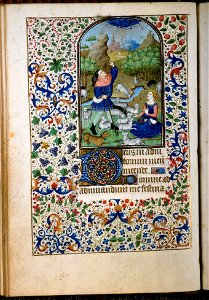 Deus in adiu
torium meū
intende.
Domine ad
adiuuandum me festina